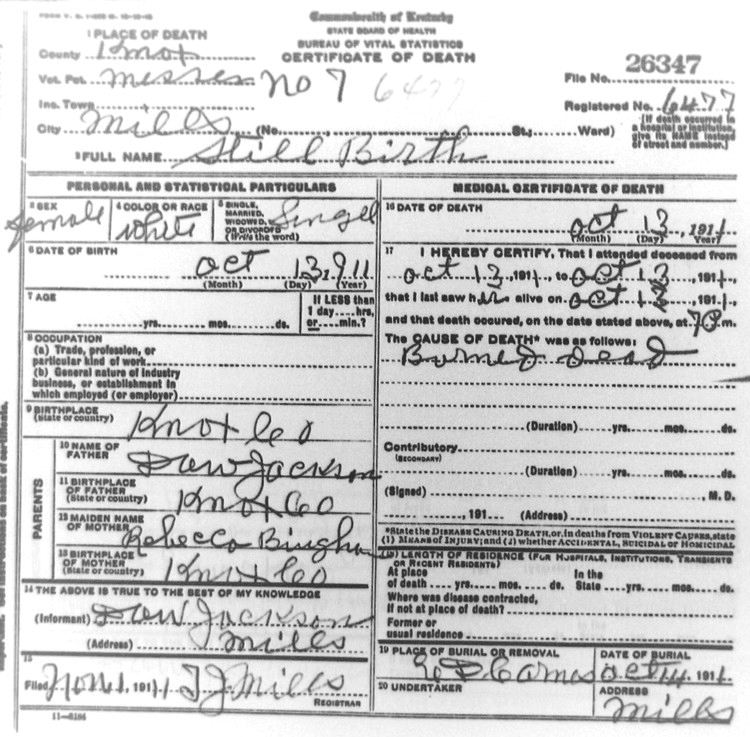 Commonwealth of Kentucky
STATE BOARD OF HEALTH
BUREAU OF VITAL STATISTICS
CERTIFICATE OF DEATH
1 PLACE OF DEATH
County Knox
Vot. Pct. Messes No 7 6477
Inc. Town
City Mills (No. St.; Ward)
File No. 26347
Registered No. 6477
(If death occurred in a hospital or institution, give its NAME instead of street and number.)
2 FULL NAME Still Birth
PERSONAL AND STATISTICAL PARTICULARS
3 SEX female
4 COLOR OR RACE white
5 SINGLE, MARRIED, WIDOWED, OR DIVORCED (Write the word) Singel
6 DATE OF BIRTH
Oct 13, 1911
(Month) (Day) (Year)
7 AGE
yrs. mos. ds.
If LESS than 1 day hrs. or min.?
8 OCCUPATION
(a) Trade, profession, or particular kind of work
(b) General nature of industry business, or establishment in which employed (or employer)
9 BIRTHPLACE (State or country) Knox Co
PARENTS
10 NAME OF FATHER Dow Jackson
11 BIRTHPLACE OF FATHER (State or country) Knox Co
12 MAIDEN NAME OF MOTHER Rebecca Bingham
13 BIRTHPLACE OF MOTHER (State or country) Knox Co
14 THE ABOVE IS TRUE TO THE BEST OF MY KNOWLEDGE
(Informant) Dow Jackson
(Address) Mills
15
Filed Nov 1 1911 T J Mills
REGISTRAR
11-6184
MEDICAL CERTIFICATE OF DEATH
16 DATE OF DEATH
Oct 13, 1911
(Month) (Day) (Year)
17 I HEREBY CERTIFY, That I attended deceased from
Oct 13, 1911, to Oct 13, 1911,
that I last saw her alive on Oct 13, 1911,
and that death occured, on the date stated above, at 7 P.m.
The CAUSE OF DEATH* was as follows:
Borned dead
(Duration) yrs. mos. ds.
Contributory
(SECONDARY)
(Duration) yrs. mos. ds.
(Signed) M. D.
, 191 (Address)
*State the DISEASE CAUSING DEATH, or, in deaths from VIOLENT CAUSES, state
(1) MEANS OF INJURY; and (2) whether ACCIDENTAL, SUICIDAL or HOMICIDAL
(18) LENGTH OF RESIDENCE (FOR HOSPITALS, INSTITUTIONS, TRANSIENTS OR RECENT RESIDENTS)
At place of death yrs. mos. ds. In the State yrs. mos. ds.
Where was disease contracted,
If not at place of death?
Former or
usual residence
19 PLACE OF BURIAL OR REMOVAL
Carnes
DATE OF BURIAL
Oct 14, 1911
20 UNDERTAKER
ADDRESS
Mills